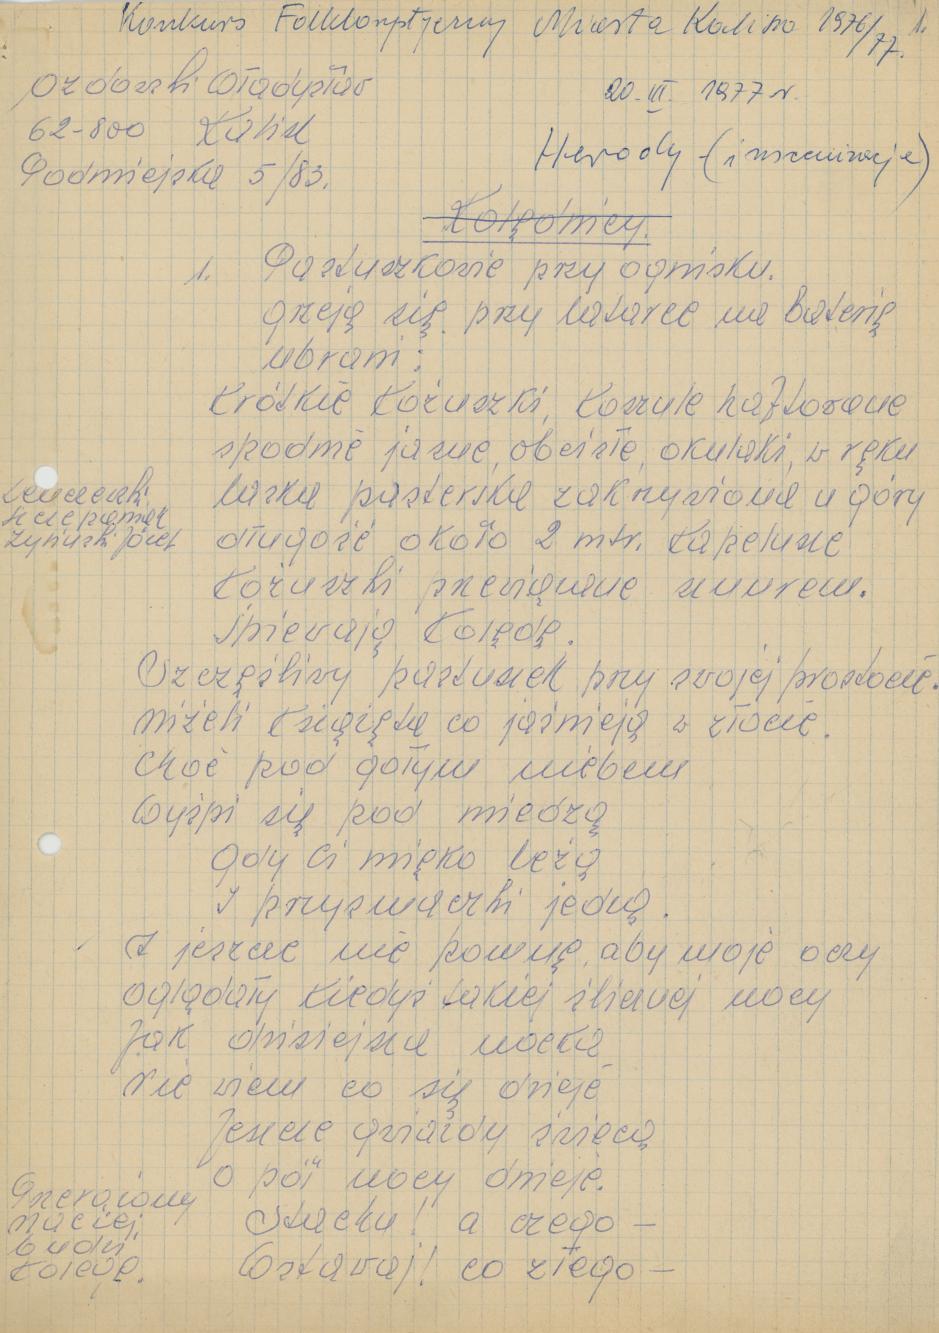 Konkurs Folklorystyczny Miasta Kalisza 1976/77. 1.
Ozdowski Władysław
20. III. 1977 r.
62-800 Kalisz
Herody (inscenizacje)
Podmiejska 5/83.
Kolędnicy.
1. Pastuszkowie przy ognisku.
grzeją się przy latarce na baterię
ubrani:
krótkie kożuszki, koszule haftowane
spodnie jasne, obcisłe, okulaki, w ręku
laska pasterska zakrzywiona u góry
Szczepaniak
Józef
długość około 2 mtr. kapelusze
kożuszki przewiązane sznurem.
śpiewają kolędę.
Szczęśliwy pastuszek przy swojej prostocie.
niżeli książęta co jaśnieją w złocie.
choć pod gołym niebem
Wyśpi się pod miedzą
gdy Ci miękko leżą
I przysmaczki jedzą.
I jeszcze nie pomnę, aby moje oczy
oglądały kiedyś takiej ślicznej nocy
Jak dzisiejsza nocka
Nie wiem co się dzieje
Jeszcze gwiazdy świecą
O pół nocy dnieje.
Przerażony
Maciej
budzi
kolegę.
Stachu! a czego —
Wstawaj! co złego —